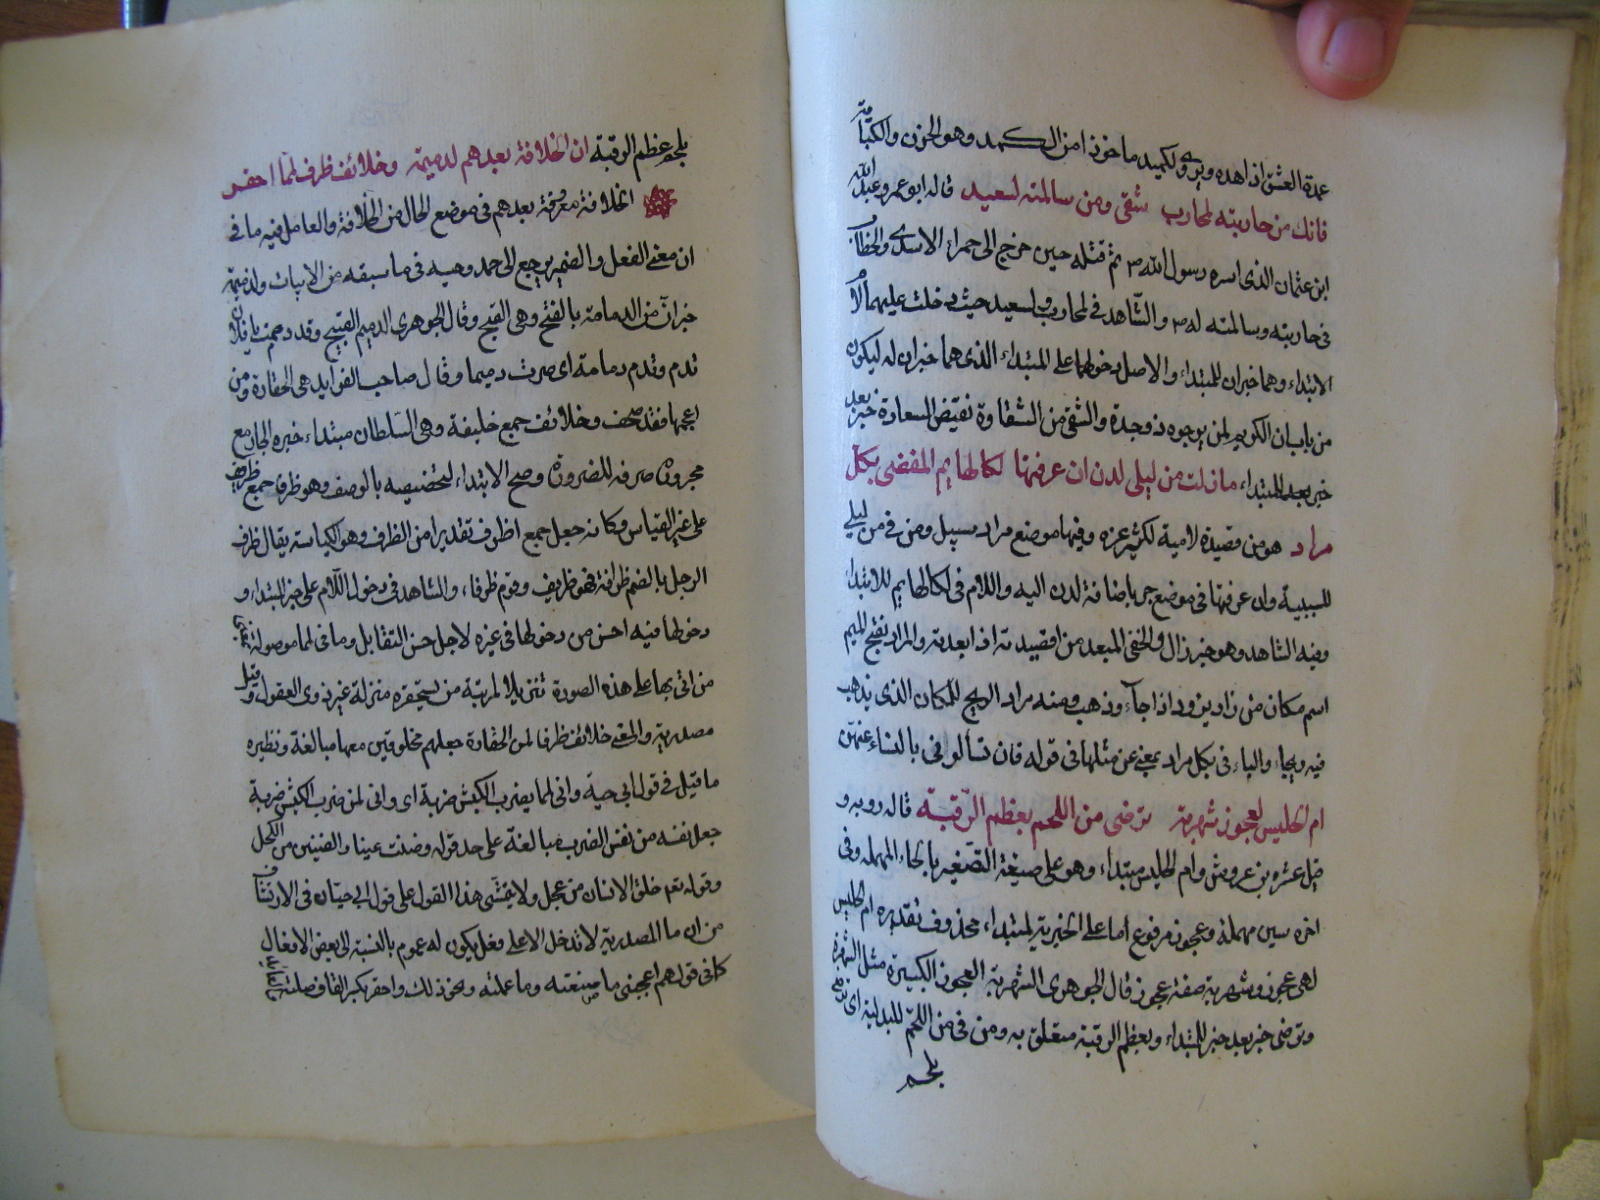 عمدة العشق اذا هده ويروى لكميد ماخوذ امن الكمد وهو الحزن والكتامة
فانك من حاربته لمحارب شقى ومن سالمته لسعيد قاله ابو عمرو عبد الله
ابن عثمان الذى اسره رسول الله ص ثم قتله حين خرج الى حمراء الاسد والخطاب
فى حاربته وسالمته له ص والشاهد فى لمحارب ولسعيد حيث دخلت عليهما لام
الابتداء وهما خبران للمبتداء والاصل دخولها على المبتداء الذى هما خبران له ليكون
من باب ان الكريم لمن يرجوه ذو جدة والشقى من الشقاوة نقيض السعادة خبر بعد
خبر بعد المبتداء مازلت من ليلى لدن ان عرفتها لكالهايم المقضى بكل
مراد هو من قصيدة لامية لكثير عزه وفيها موضع مراد سبيل ومن فى من ليلى
للسببية وان عرفتها فى موضع جر باضافة لدن اليه واللام فى لكالهايم للابتداء
وفيه الشاهد وهو خبر زال والمقصى المبعد من اقصيته اذا ابعدته والمراد بفتح الميم
اسم مكان من راد يرود اذا جآء وذهب ومنه مراد الريح للمكان الذى يذهب
فيه ويجاء والباء فى بكل مراد بمعنى عن مثلها فى قوله فان تسألونى بالنساء عنهن
ام الحليس لعجوز شهربة ترضى من اللحم بعظم الرقبة قاله روبه و
قيل عنتره بن عروش وام الحليس مبتداء وهو على صيغة التصغير بالحاء المهمله وفى
اخره سين مهملة وعجوز مرفوع اما على الخبرية لمبتداء محذوف تقديره ام الحليس
لهى عجوز وشهربة صفة عجوز قال الجوهرى الشهربة العجوز الكبيرة مثل الشهبرة
وترضى خبر بعد خبر للمبتداء وبعظم الرقبة متعلق به ومن فى من اللحم للبدلية اى ترضى
بلحم
بلحم عظم الرقبة ان الخلافة بعدهم لدميمة وخلائف ظرف لمما احقر
الخلافة معرفة بعدهم فى موضع الحال من الخلافة والعامل فيه ما فى
ان معنى الفعل والضمير يرجع الى حمد وحيه فى ما سبقه من الابيات ولدميمة
خبر ان من الدمامة بالفتح وهى القبح وقال الجوهرى الدميم القبيح وقد دممت يا فلان
تدم وتدم دمامة اى صرت دميما وقال صاحب الفوايد هى الحقارة ومن
اعجمها فقد صحف وخلائف جمع خليفة وهى السلطان مبتداء خبره الجار مع
مجروره صرفه للضرورة وصح الابتداء لتخصيصه بالوصف وهو ظرف جمع ظريف
على غير القياس وكانه جعل جمع اظرف تقديرا من الظرف وهو الكياسة يقال ظرف
الرجل بالضم ظرافة فهو ظريف وقوم ظرفاء والشاهد فى دخول اللام على خبر المبتداء و
دخولها فيه احسن من دخولها فى غيره لاجل حسن التقابل وما فى لمما موصولة بمعنى
من اتى بها على هذه الصورة تنزيلا لمرتبة من يستحقره منزلة غير ذوى العقول وقيل
مصدرية والمعنى خلائف ظرف لمن الحقارة جعلهم مخلوقين معها مبالغة ونظيره
ما قيل فى قول ابى حية وانى لمما يضرب الكبش ضربة اى وانى لمن ضرب الكبش ضربة
جعل نفسه من نفس الضرب مبالغة على حد قوله وضنت علينا والضنين من البخل
وقوله تعم خلق الانسان من عجل ولا يتمشى هذا القول على قول ابى حيان فى الارتشاف
من ان ما المصدرية لا تدخل الا على فعل يكون له عموم بالنسبة الى بعض الافعال
كما فى قولهم اعجبنى ما صنعته وما عملته ونحو ذلك واحقر بكسر القاف صلته